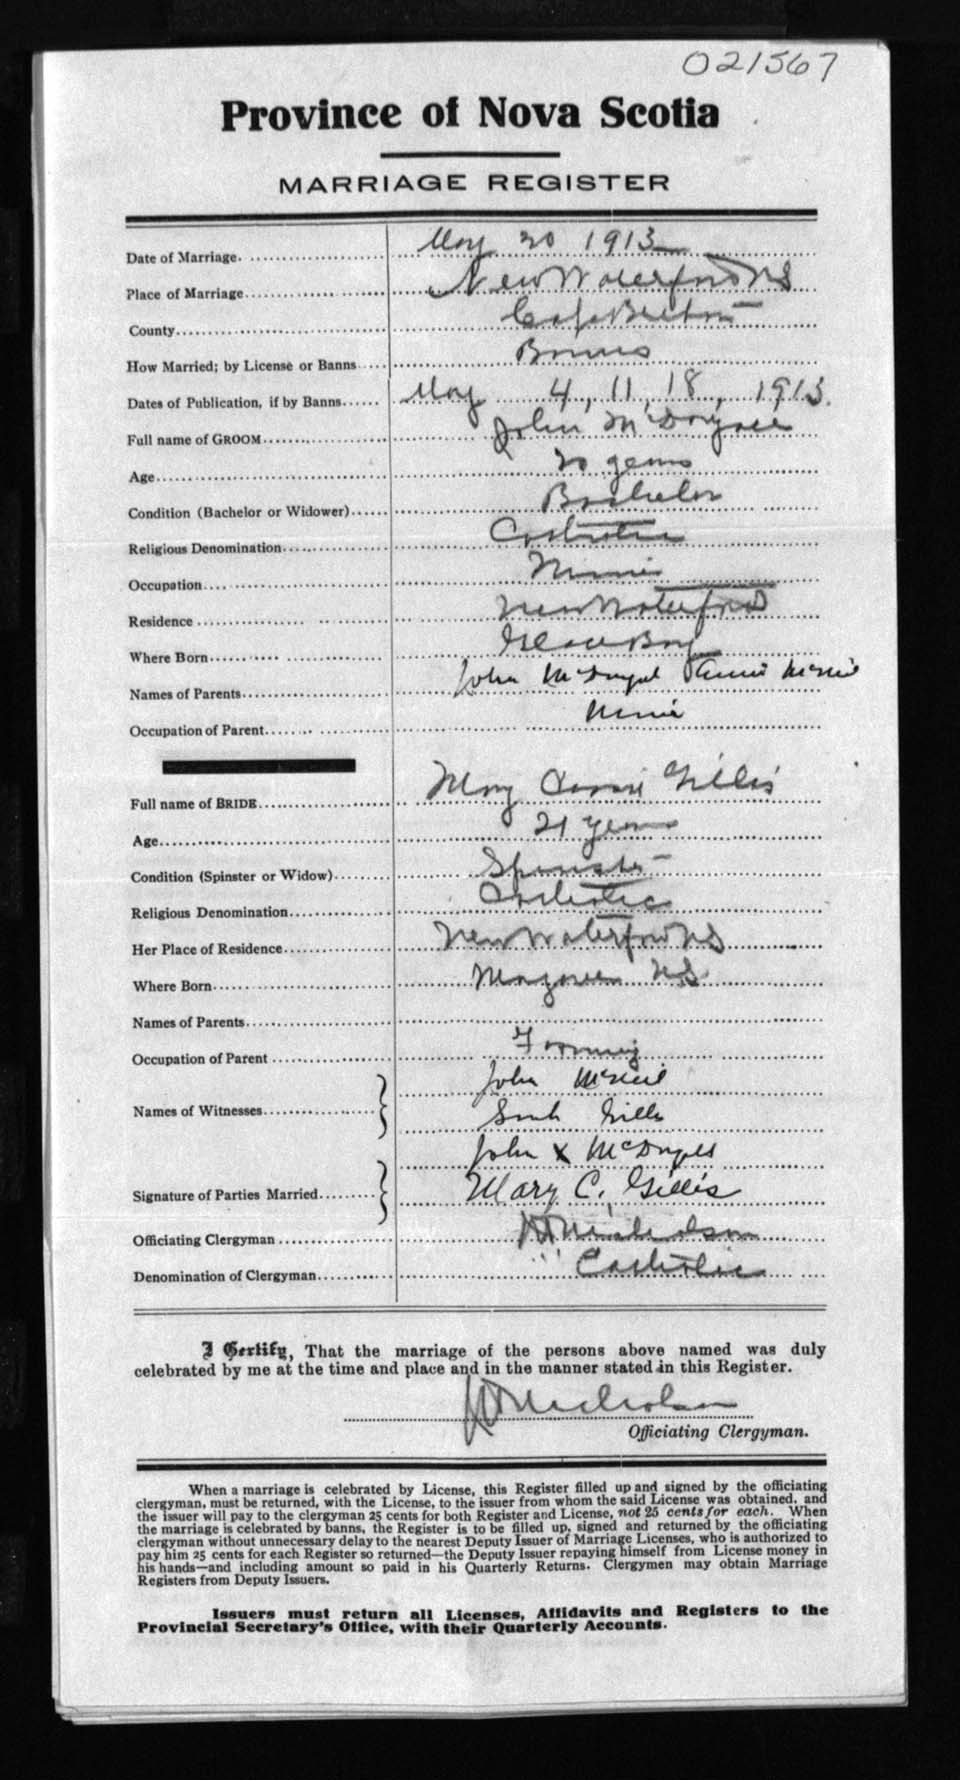 021567
Province of Nova Scotia
MARRIAGE REGISTER
Date of Marriage. May 20 1913
Place of Marriage New Waterford NS
County Cape Breton
How Married; by License or Banns Banns
Dates of Publication, if by Banns May 4, 11, 18, 1913.
Full name of GROOM John McDougall
Age 20 years
Condition (Bachelor or Widower) Bachelor
Religious Denomination Catholic
Occupation Miner
Residence New Waterford
Where Born Glace Bay
Names of Parents John McDougal Annie McNeil
Occupation of Parent Miner
Full name of BRIDE Mary Gillis
Age 21 years
Condition (Spinster or Widow) Spinster
Religious Denomination Catholic
Her Place of Residence New Waterford NS
Where Born Margaree NS
Names of Parents
Occupation of Parent Farming
John McNeil
Names of Witnesses
Gillis
John X McDugald
Signature of Parties Married Mary C. Gillis
Officiating Clergyman Nicholson
Denomination of Clergyman Catholic
I Certify, That the marriage of the persons above named was duly
celebrated by me at the time and place and in the manner stated in this Register.
Nicholson
Officiating Clergyman.
When a marriage is celebrated by License, this Register filled up and signed by the officiating
clergyman, must be returned, with the License, to the issuer from whom the said License was obtained, and
the issuer will pay to the clergyman 25 cents for both Register and License, not 25 cents for each. When
the marriage is celebrated by banns, the Register is to be filled up, signed and returned by the officiating
clergyman without unnecessary delay to the nearest Deputy Issuer of Marriage Licenses, who is authorized to
pay him 25 cents for each Register so returned—the Deputy Issuer repaying himself from License money in
his hands—and including amount so paid in his Quarterly Returns. Clergymen may obtain Marriage
Registers from Deputy Issuers.
Issuers must return all Licenses, Affidavits and Registers to the
Provincial Secretary's Office, with their Quarterly Accounts.